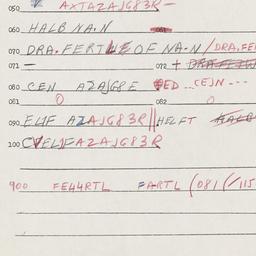 050 AXTAZAJG83R -
060 HALB NA.N
070 DRA.FERTLE OF NA.N / DRA.FE
071 - 072 +
080 CEN AZAJG8E PED ... CEJN ---
081 0 082
090 ELIF AZAJG83R || HELFT HALB
100 CVELJFAZAJG83R
900 FEL44RTL FARTL (081 (/115